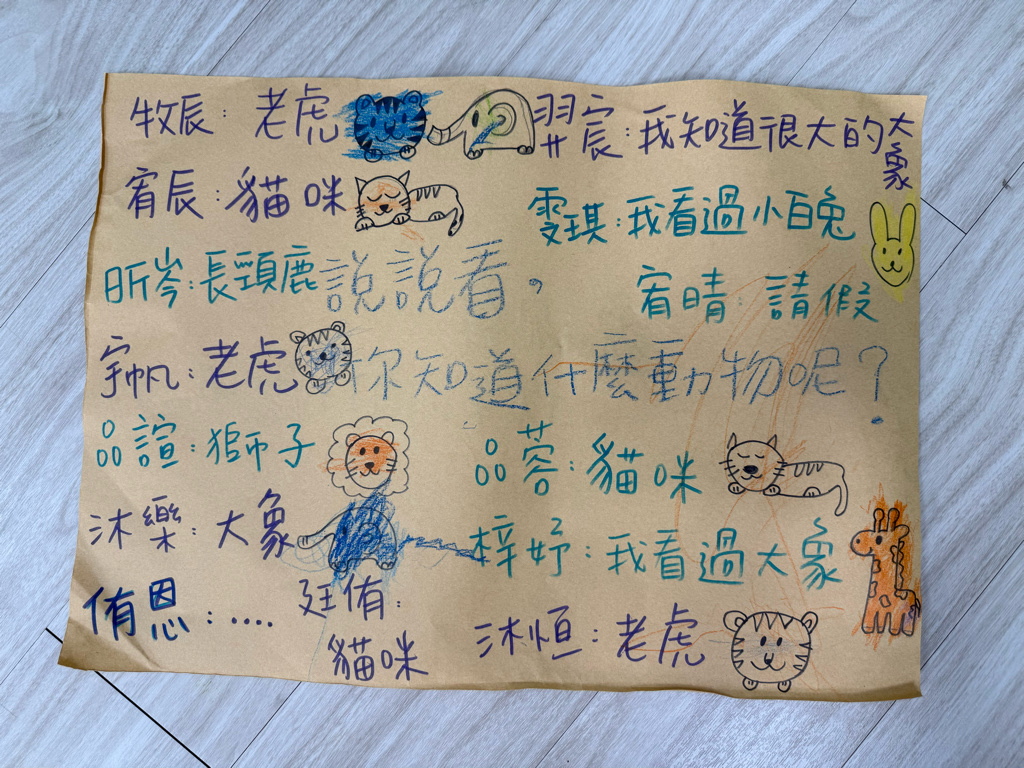 牧辰：老虎
羿宸：我知道很大的大象
宥辰：貓咪
雯琪：我看過小白兔
昕岑：長頸鹿
說說看，
宥晴：請假
宇帆：老虎
你知道什麼動物呢？
品諠：獅子
品蓉：貓咪
沐樂：大象
梓妤：我看過大象
侑恩：....
廷侑：
貓咪
沐恒：老虎